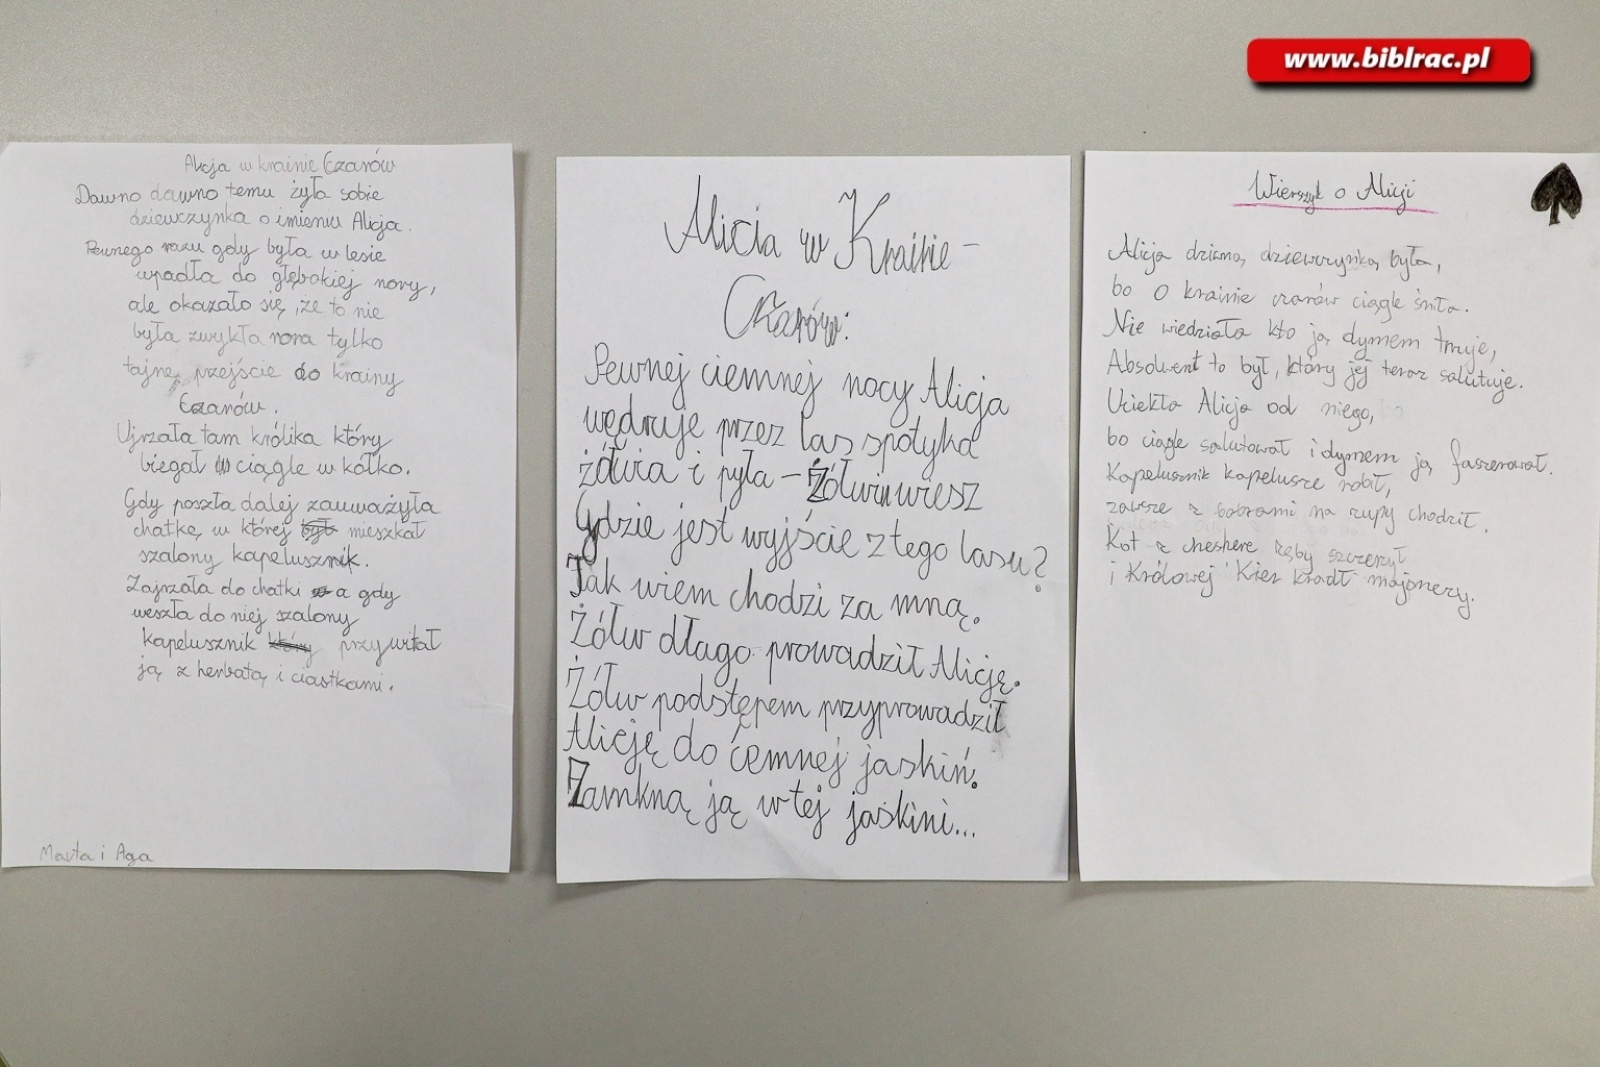 www.biblrac.pl
Alicja w krainie Czarów
Dawno dawno temu żyła sobie
dziewczynka o imieniu Alicja.
Pewnego razu gdy była w lesie
wpadła do głębokiej nory,
ale okazało się, że to nie
była zwykła nora tylko
tajne przejście do krainy
Czarów.
Ujrzała tam królika który
biegał w ciągle w kółko.
Gdy poszła dalej zauważyła
chatkę, w której był mieszkał
szalony kapelusznik.
Zajrzała do chatki a gdy
weszła do niej szalony
kapelusznik który przywitał
ją z herbatą i ciastkami.
Marta i Aga
Alicia w Krainie -
Czarów:
Pewnej ciemnej nocy Alicja
wędruje przez las spotyka
żółwia i pyta - Żółwiu wiesz
Gdzie jest wyjście z tego lasu?
Tak wiem chodzi za mną.
Żółw dłago prowadził Alicję.
Żółw podstępem przyprowadził
Alicję do ćemnej jaskiń.
Zamkną ją w tej jaskini...
Wierszyk o Alicji
Alicja dziwną dziewczynką była,
bo o krainie czarów ciągle śniła.
Nie wiedziała kto ją dymem truje,
Absolwent to był, który jej teraz salutuje.
Uciekła Alicja od niego,
bo ciągle salutował i dymem ją faszerował.
Kapelusznik kapelusze robił,
zawsze z bobrami na zupy chodził.
Kot z cheshere zęby szczerzył
i Królowej Kier kradł majonezy.